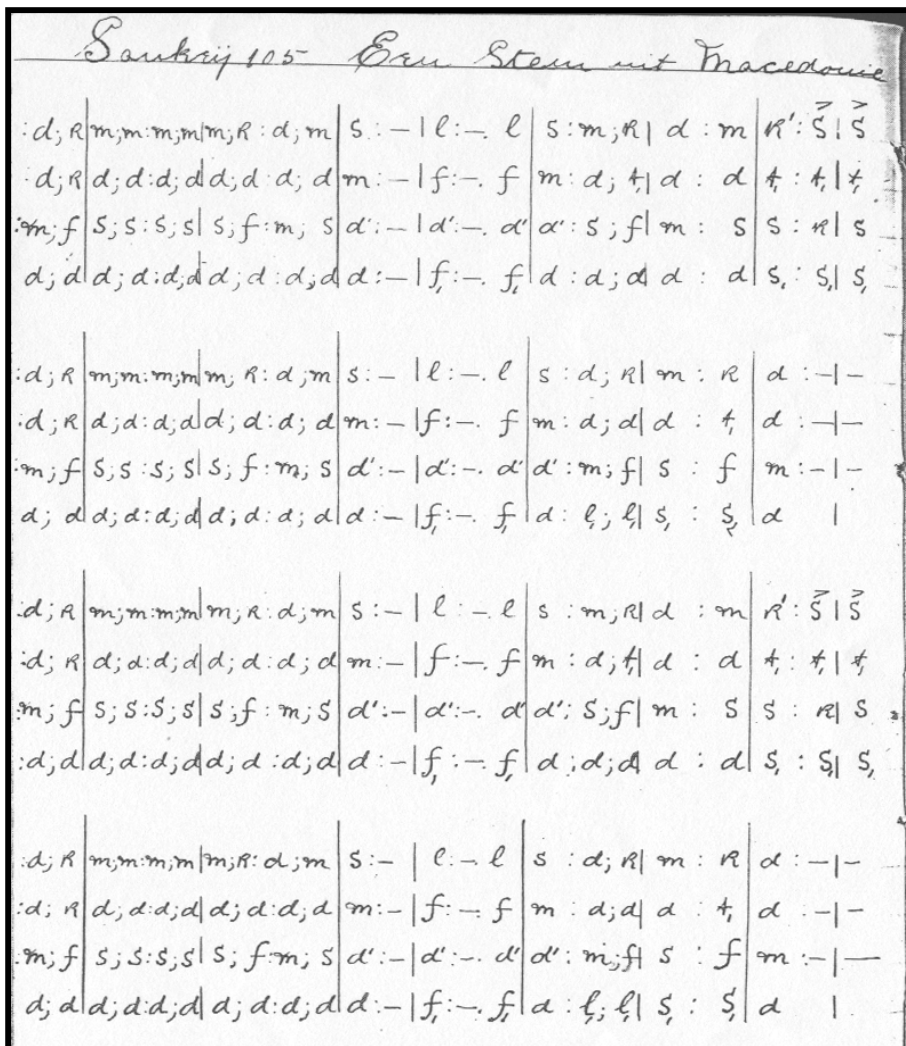 Sankey 105 Een Stem uit Macedonie
:d; R|m;m:m;m|m;R:d;m|s:–|l:–. l|s:m;R|d:m|R':s̄|s̄
:d;R|d;d:d;d|d;d:d;d|m:–|f:–. f|m:d;t,|d:d|t,:t,|t,
:m;f|s;s:s;s|s;f:m;s|d':–|d':–. d'|d':s;f|m:s|s:R|s
d;d|d;d:d;d|d;d:d;d|d:–|f,:–. f,|d:d;d|d:d|s,:s,|s,
:d;R|m;m:m;m|m;R:d;m|s:–|l:–. l|s:d;R|m:R|d:–|–
:d;R|d;d:d;d|d;d:d;d|m:–|f:–. f|m:d;d|d:t,|d:–|–
:m;f|s;s:s;s|s;f:m;s|d':–|d':–. d'|d':m;f|s:f|m:–|–
d;d|d;d:d;d|d;d:d;d|d:–|f,:–. f,|d:l,;l,|s,:s,|d |
:d;R|m;m:m;m|m;R:d;m|s:–|l:– l|s:m;R|d:m|R':s̄|s̄
:d;R|d;d:d;d|d;d:d;d|m:–|f:–. f|m:d;t,|d:d|t,:t,|t,
:m;f|s;s:s;s|s;f:m;s|d':–|d':–. d'|d':s;f|m:s|s:R|s
:d;d|d;d:d;d|d;d:d;d|d:–|f,:–. f,|d:d;d|d:d|s,:s,|s,
:d;R|m;m:m;m|m;R:d;m|s:–|l:– l|s:d;R|m:R|d:–|–
:d;R|d;d:d;d|d;d:d;d|m:–|f:– f|m:d;d|d:t,|d:–|–
:m;f|s;s:s;s|s;f:m;s|d':–|d':–. d'|d':m;f|s:f|m:–|–
d;d|d;d:d;d|d;d:d;d|d:–|f,:–. f,|d:l,;l,|s,:s,|d |